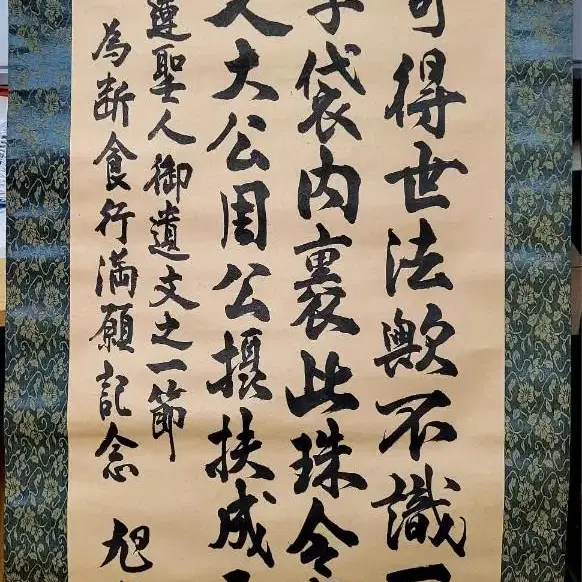 可得世法歟不識一
字袋内裏此珠令
人大公周公摂扶成
蓮聖人御遺文之一節
為断食行満願記念 旭